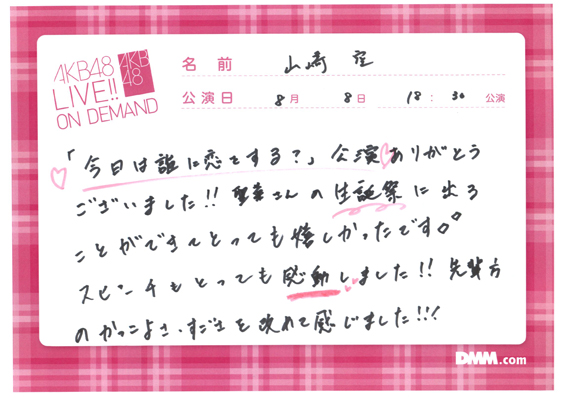 AKB48
LIVE!!
ON DEMAND
AKB
48
名前 山﨑 空
公演日 8月 8日 18:30 公演
「今日は誰に恋をする?」公演ありがとう
ございました!! 聖菜さんの生誕祭に出る
ことができてとっても嬉しかったです。
スピーチもとっても感動しました!! 先輩方
のかっこよさ、すごさを改めて感じました!!!
DMM.com